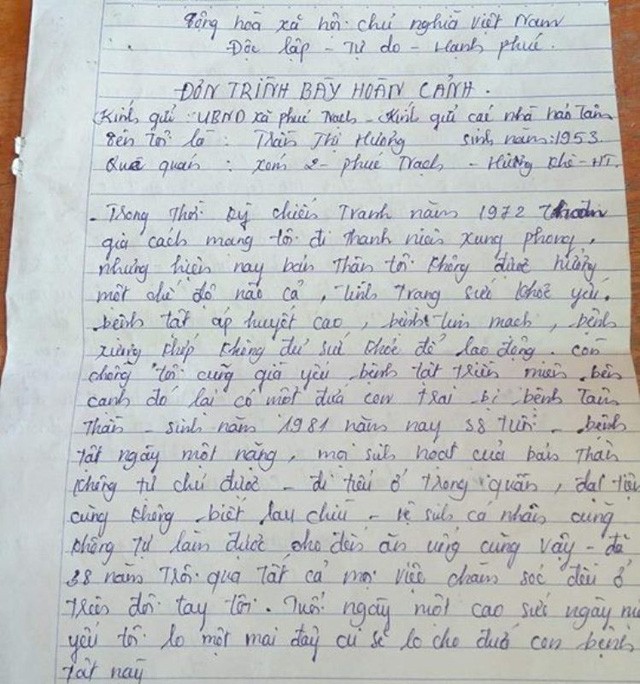 Cộng hoà xã hội chủ nghĩa Việt Nam
Độc lập - Tự do - Hạnh phúc.
ĐƠN TRÌNH BÀY HOÀN CẢNH.
Kính gửi: UBND xã phúc Trạch - Kính gửi các nhà hảo Tâm
Tên tôi là: Trần Thị Hương sinh năm: 1953
Quê quán: xóm 2 - phúc Trạch - Hương Khê - HT.
- Trong Thời kỳ chiến Tranh năm 1972
già cách mạng tôi đi Thanh niên xung phong,
nhưng hiện nay bản Thân tôi không được hưởng
một chế độ nào cả, Tình Trạng sức khoẻ yếu,
bệnh tật áp huyết cao, bệnh tim mạch, bệnh
xương khớp không đủ sức khoẻ để lao động. còn
chồng tôi cũng già yếu bệnh tật triền miên bên
cạnh đó lại có một đứa con Trai bị bệnh Tâm
Thần - sinh năm 1981 năm nay 38 tuổi - bệnh
tật ngày một nặng, mọi sinh hoạt của bản Thân
không tự chủ được - đi tiểu ở trong quần, đại tiện
cũng không biết lau chùi - vệ sinh cá nhân cũng
không tự làm được cho đến ăn uống cũng vậy - đã
38 năm Trôi qua tất cả mọi việc chăm sóc đều ở
trên đôi tay tôi. Tuổi ngày một cao sức ngày
yếu tôi lo một mai đây ai sẽ lo cho đứa con bệnh
tật này